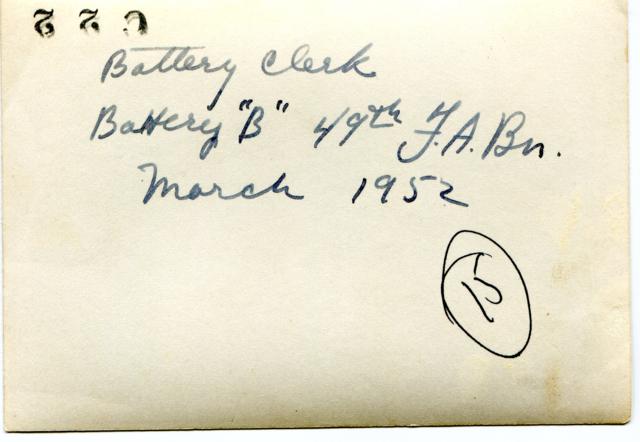 Battery Clerk
Battery "B" 49th F.A. Bn.
March 1952